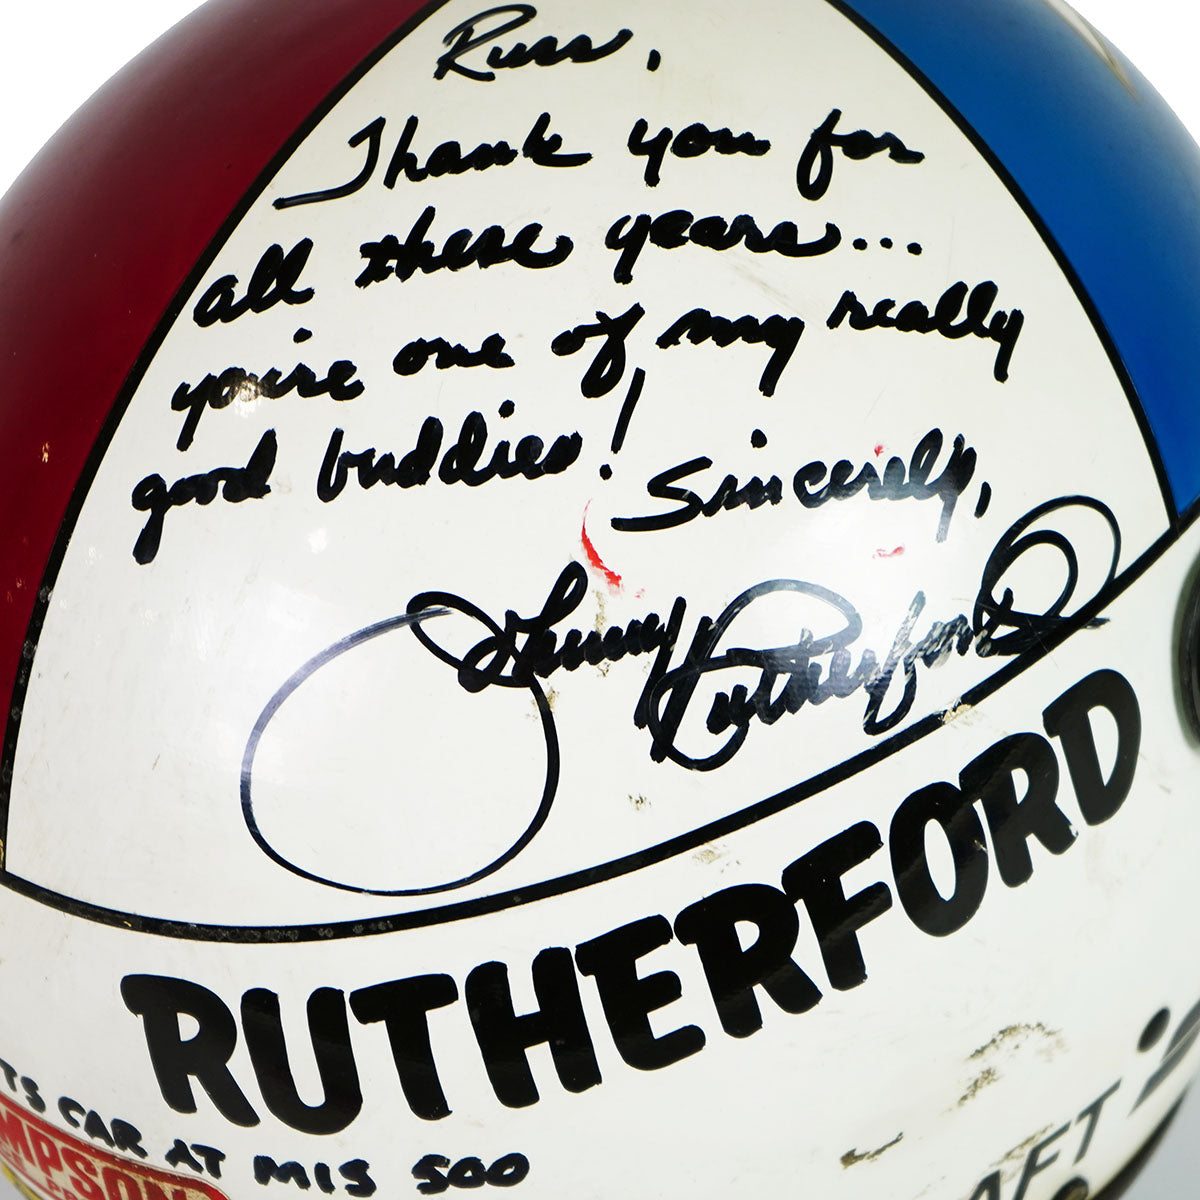 Russ,
Thank you for
all these years...
you're one of my really
good buddies!
Sincerely,
Johnny Rutherford
RUTHERFORD
TS CAR AT MIS 500
MPSON
AFT